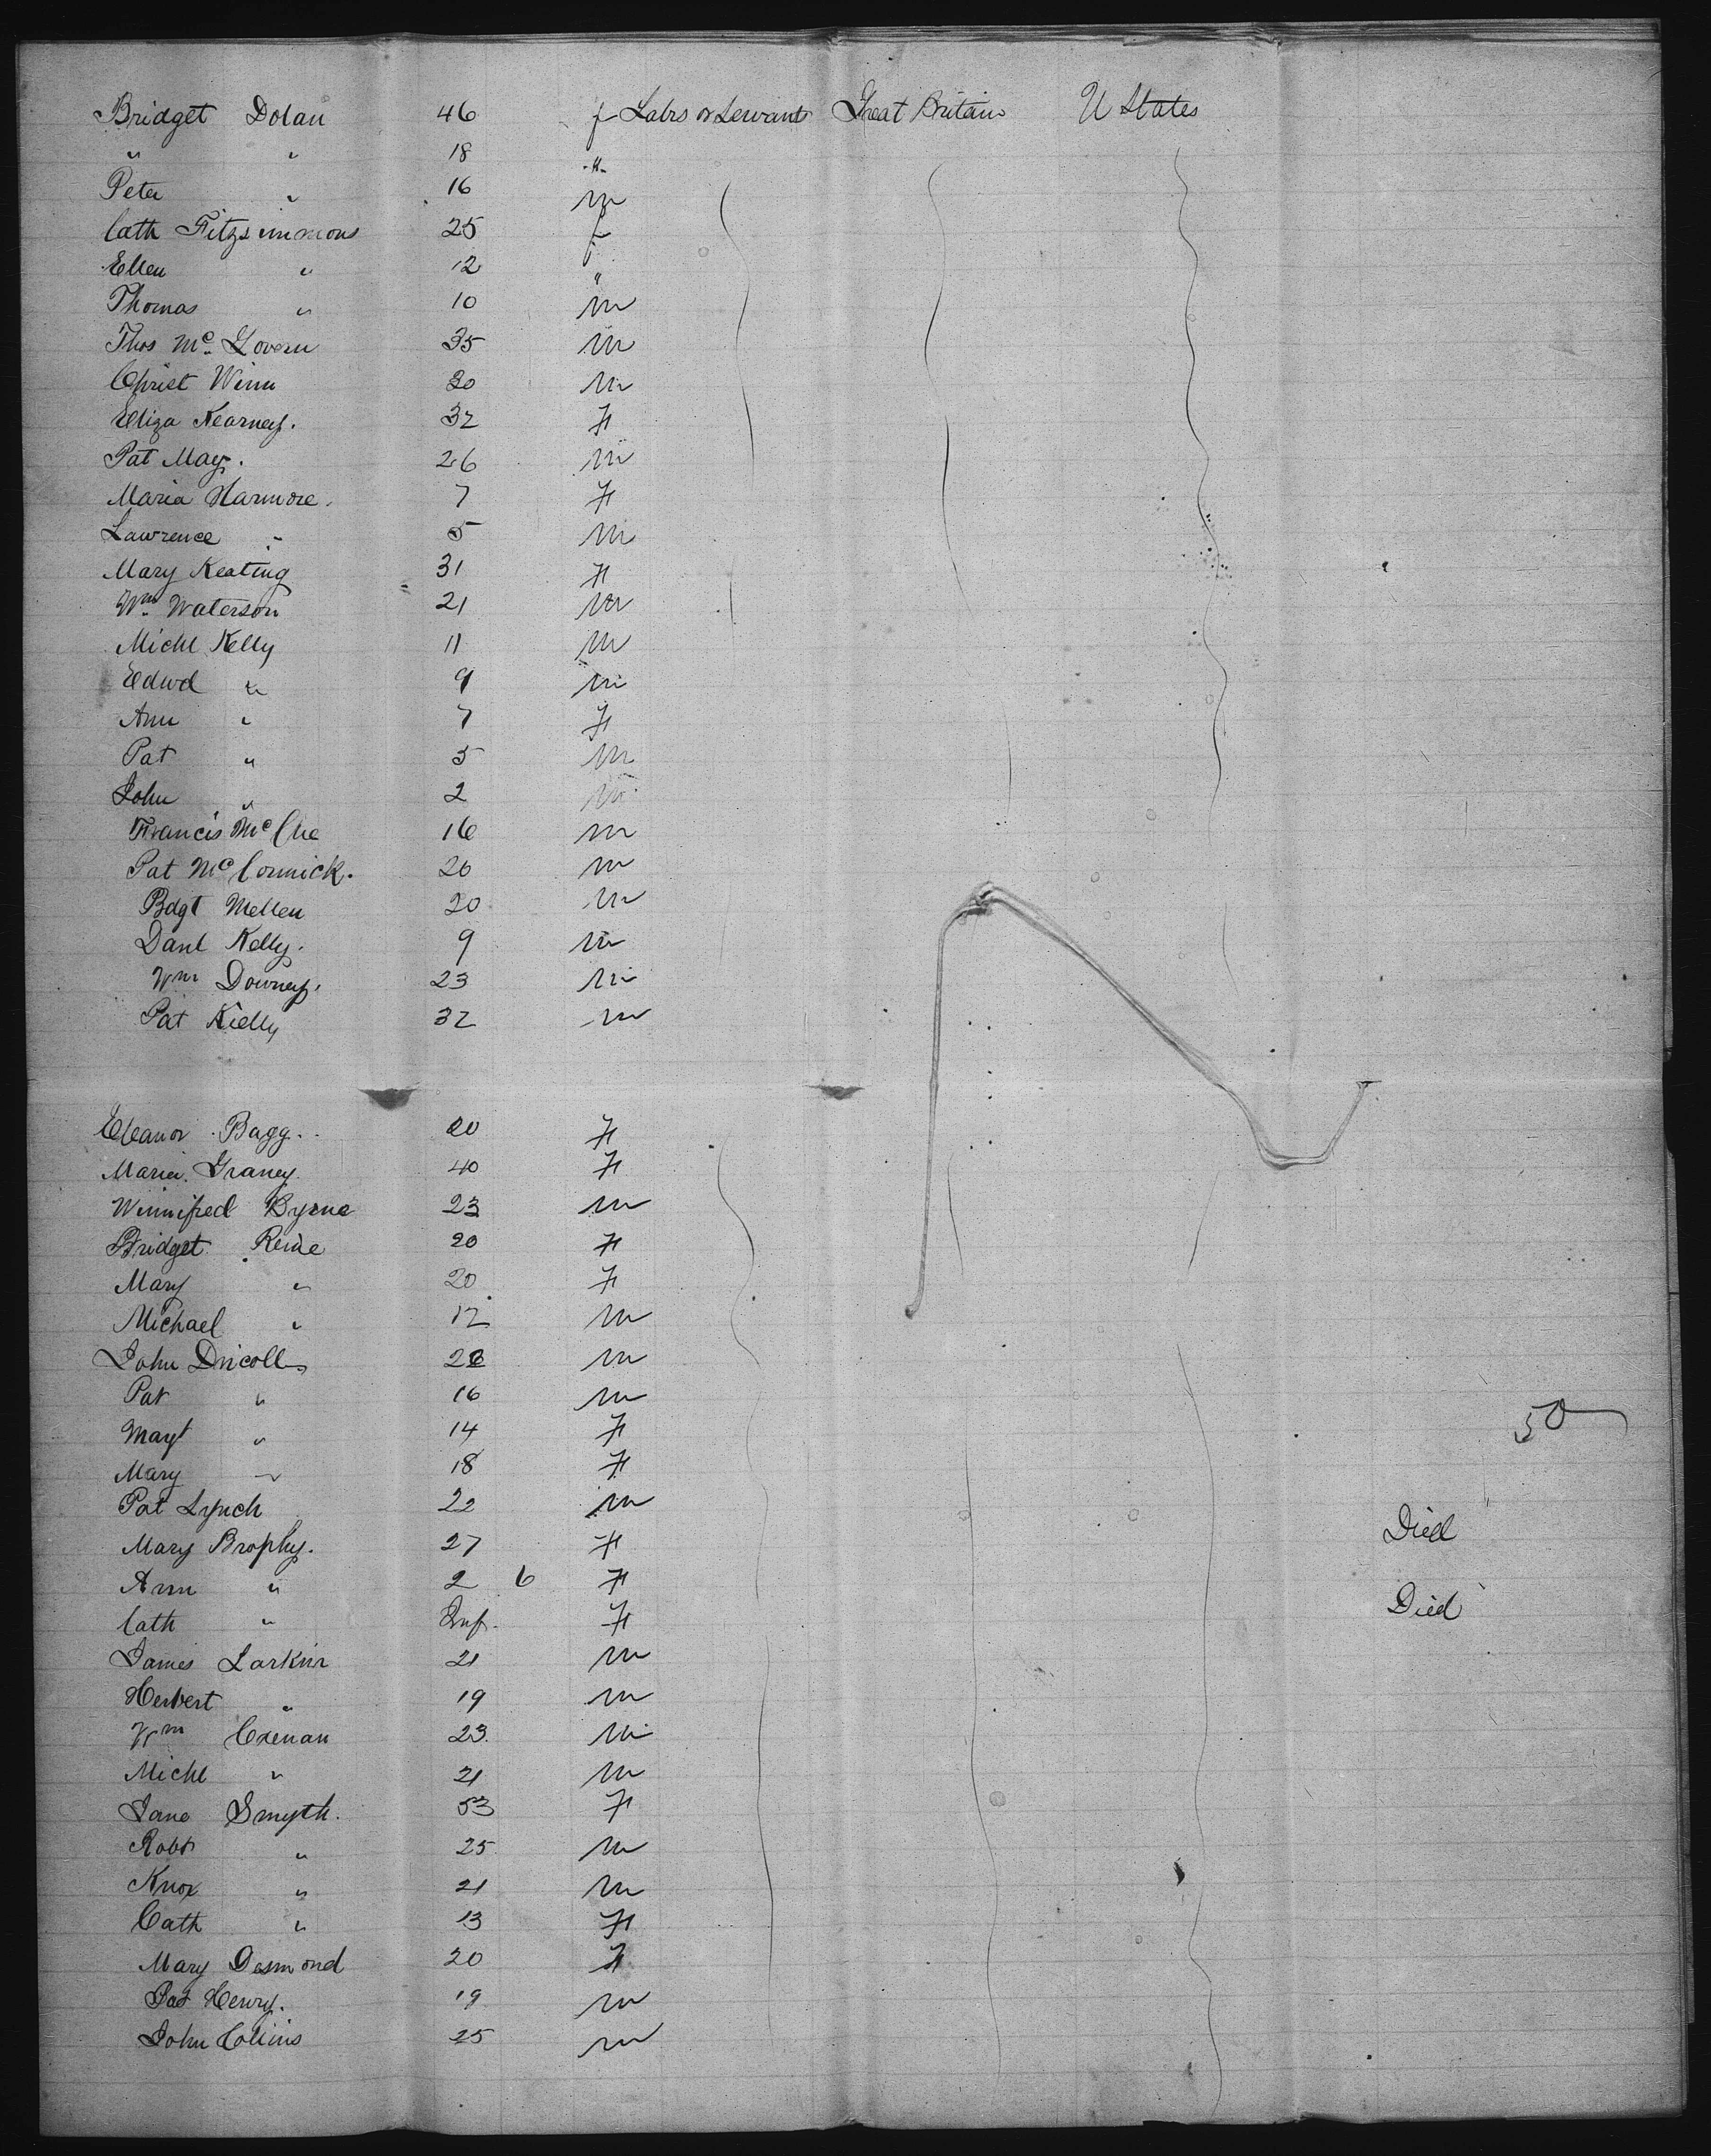 Bridget Dolan 46 f Labrs or Servants Great Britain U States
" " 18 "
Peter " 16 m
Cath Fitzsimmons 25 f
Ellen " 12 "
Thomas " 10 m
Thos Mc Govern 35 m
Christ Winn 30 m
Eliza Kearney. 32 F
Pat May. 26 m
Maria Harmore. 7 F
Lawrence " 5 m
Mary Keating 31 F
Wm Waterson 21 m
Michl Kelly 11 m
Edwd " 9 m
Ann " 7 F
Pat " 5 m
John " 2 m
Francis Mc Cue 16 m
Pat Mc Cormick. 20 m
Bdgt Mellen 20 m
Danl Kelly. 9 m
Wm Downey. 23 m
Pat Kielly 32 m
Eleanor Bagg. 20 F
Maria Graney 40 F
Winnifred Byrne 23 m
Bridget Reine 20 F
Mary " 20 F
Michael " 12 m
John Dricoll 26 m
Pat " 16 m
Magt " 14 F 50
Mary " 18 F
Pat Lynch 22 m
Mary Brophy. 27 F Died
Ann " 2 6 F
Cath " Inf. F Died
James Larkin 21 m
Herbert " 19 m
Wm Crenan 23 m
Michl " 21 m
Jane Smyth. 53 F
Robt " 25 m
Knox " 21 m
Cath " 13 F
Mary Desmond 20 F
Pat Henry. 19 m
John Collins 25 m